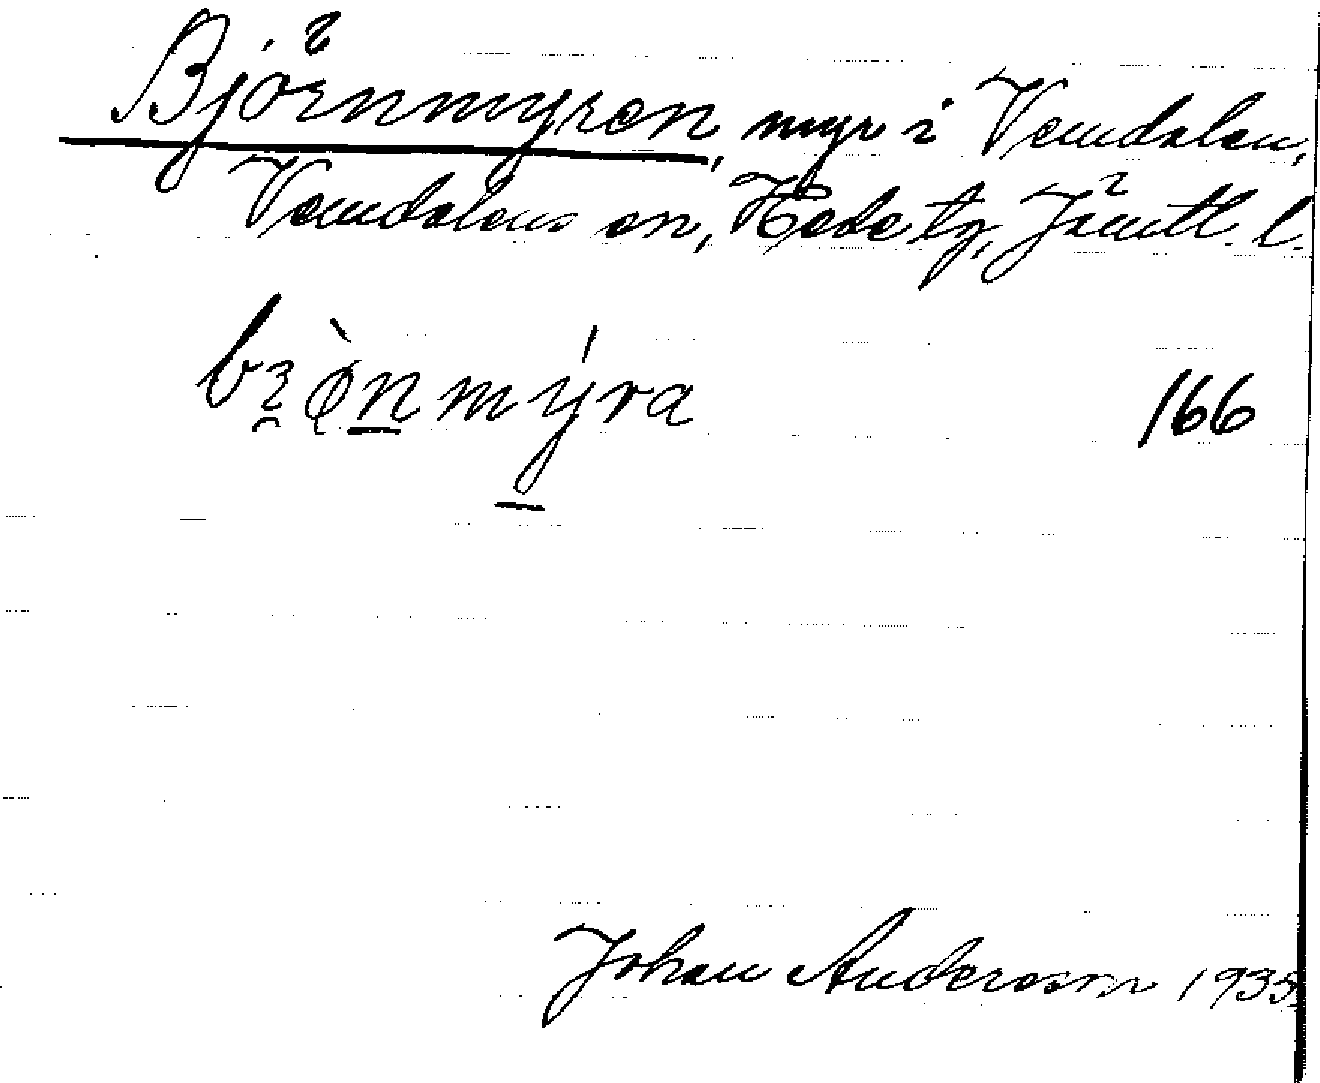 Björnmyren, myr i Vemdalen,
Vemdalens sn, Hede tg, Jämtl. l.
166
Johan Anderson 1935